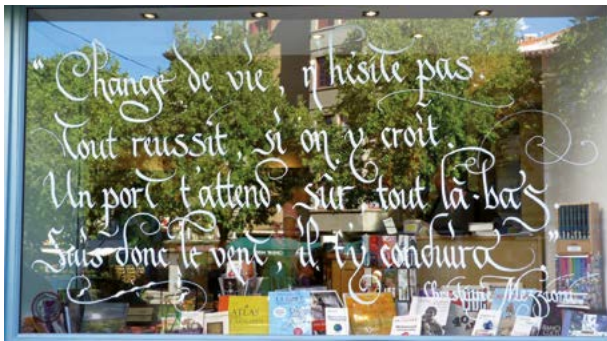 “ Change de vie, n'hésite pas.
Tout reussit, si on y croit.
Un port t'attend, sûr, tout là-bas.
Suis donc le vent, il t'y conduira ”
Christine
ATLAS